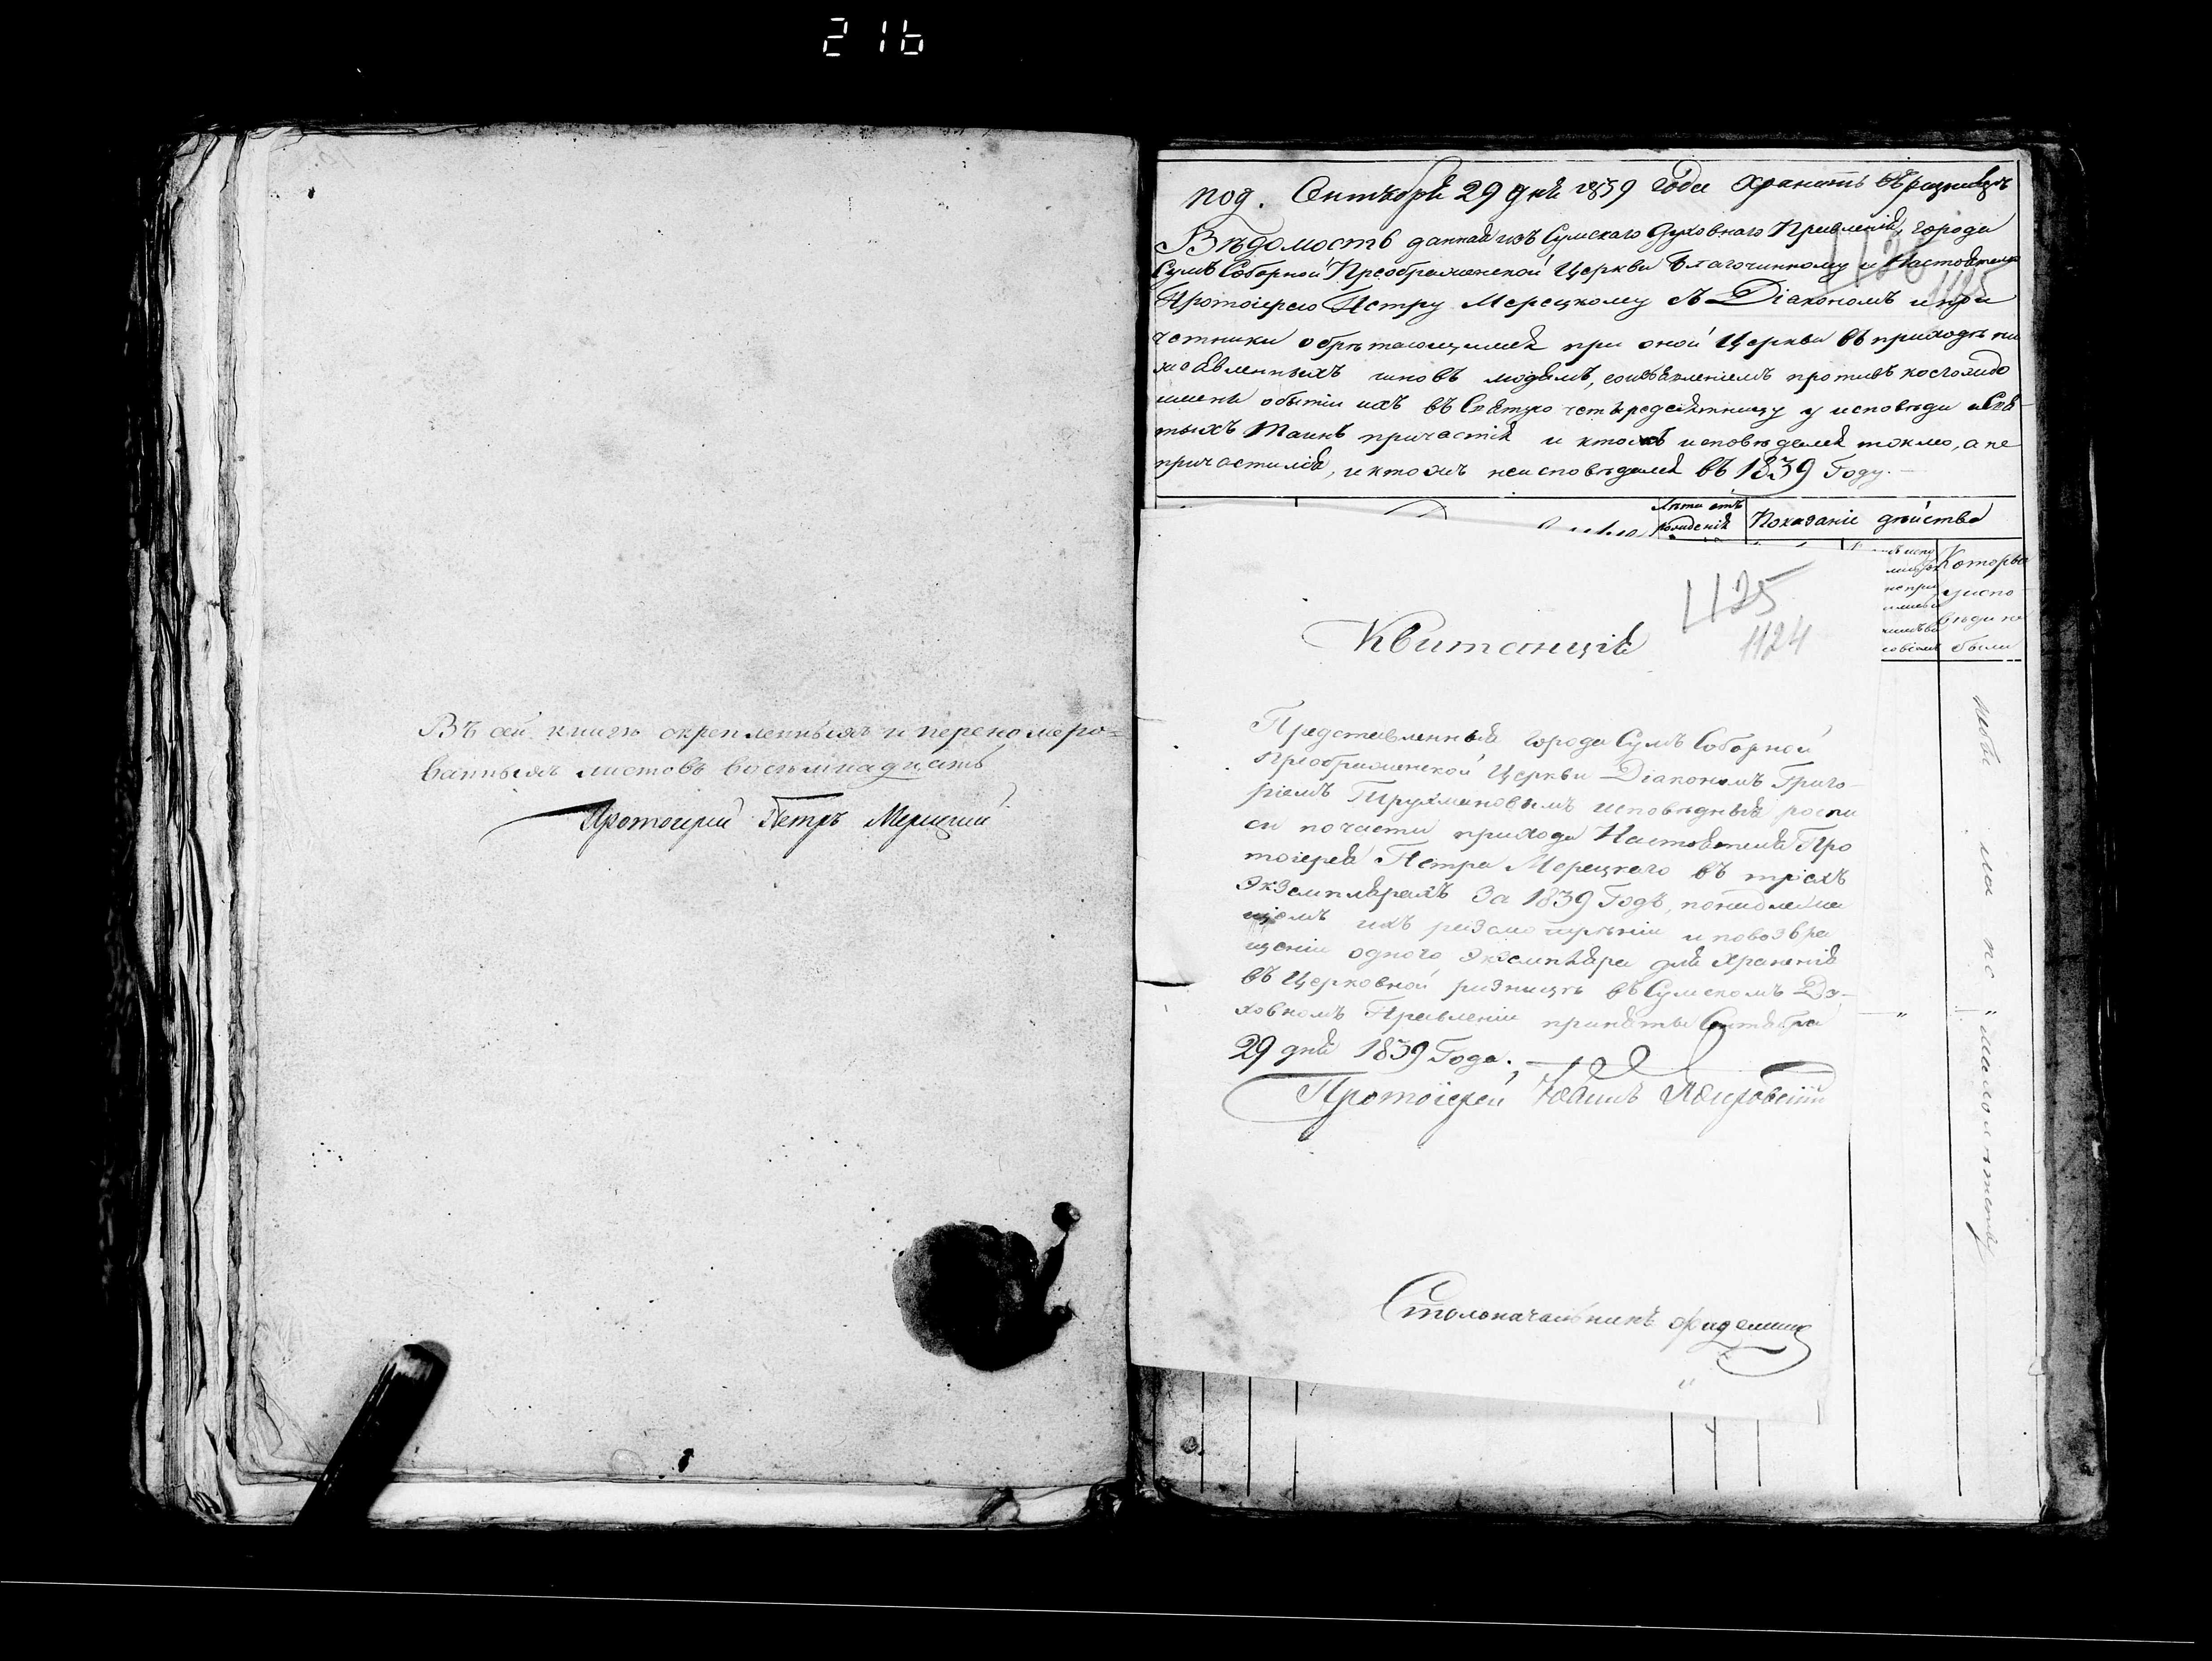 216
Въ сей книгѣ скрепленныхъ и переномеро=
ванныхъ листовъ восемнадцать
Протоіерей Петръ Мерецкій
под. Сентября 29 дня 1839 года хранить въ ризницѣ
Вѣдомость данная изъ Сумскаго Духовнаго Правленія, города
Сумъ Соборной Преображенской Церкви Благочинному и Настоятелю
Протоіерею Петру Мерецкому съ Діакономъ и при
четники обрѣтающимся при оной Церкви въ приходѣ ни
жеявленныхъ чиновъ людямъ, со изъявленіемъ противъ коегождо
имени о бытіи ихъ въ Святую четыредесятницу у исповѣди и Свя-
тыхъ Таинъ причастія и ктожъ исповѣдался токмо, а не
причастился, и ктожъ неисповѣдался въ 1839 Году.
1125
Лѣта отъ
рожденія
Показаніе дѣйства
Которые
у испо
вѣди не
были
1125
1124
Квитанція
Представленныя города Сумъ Соборной
Преображенской Церкви Діакономъ Григо-
ріемъ исповѣдныя роспи
си по части прихода Настоятеля Про
тоіерея Петра Мерецкаго въ трехъ
Экземплярахъ за 1839 Годъ, по надлежа
щемъ ихъ разсмотрѣніи и по возвра
щеніи одного Экземпляра для храненія
въ Церковной ризницѣ въ Сумскомъ Ду-
ховномъ Правленіи приняты Сентября
29 дня 1839 Года.
Протоіерей
Столоначальникъ
по
малолѣтству